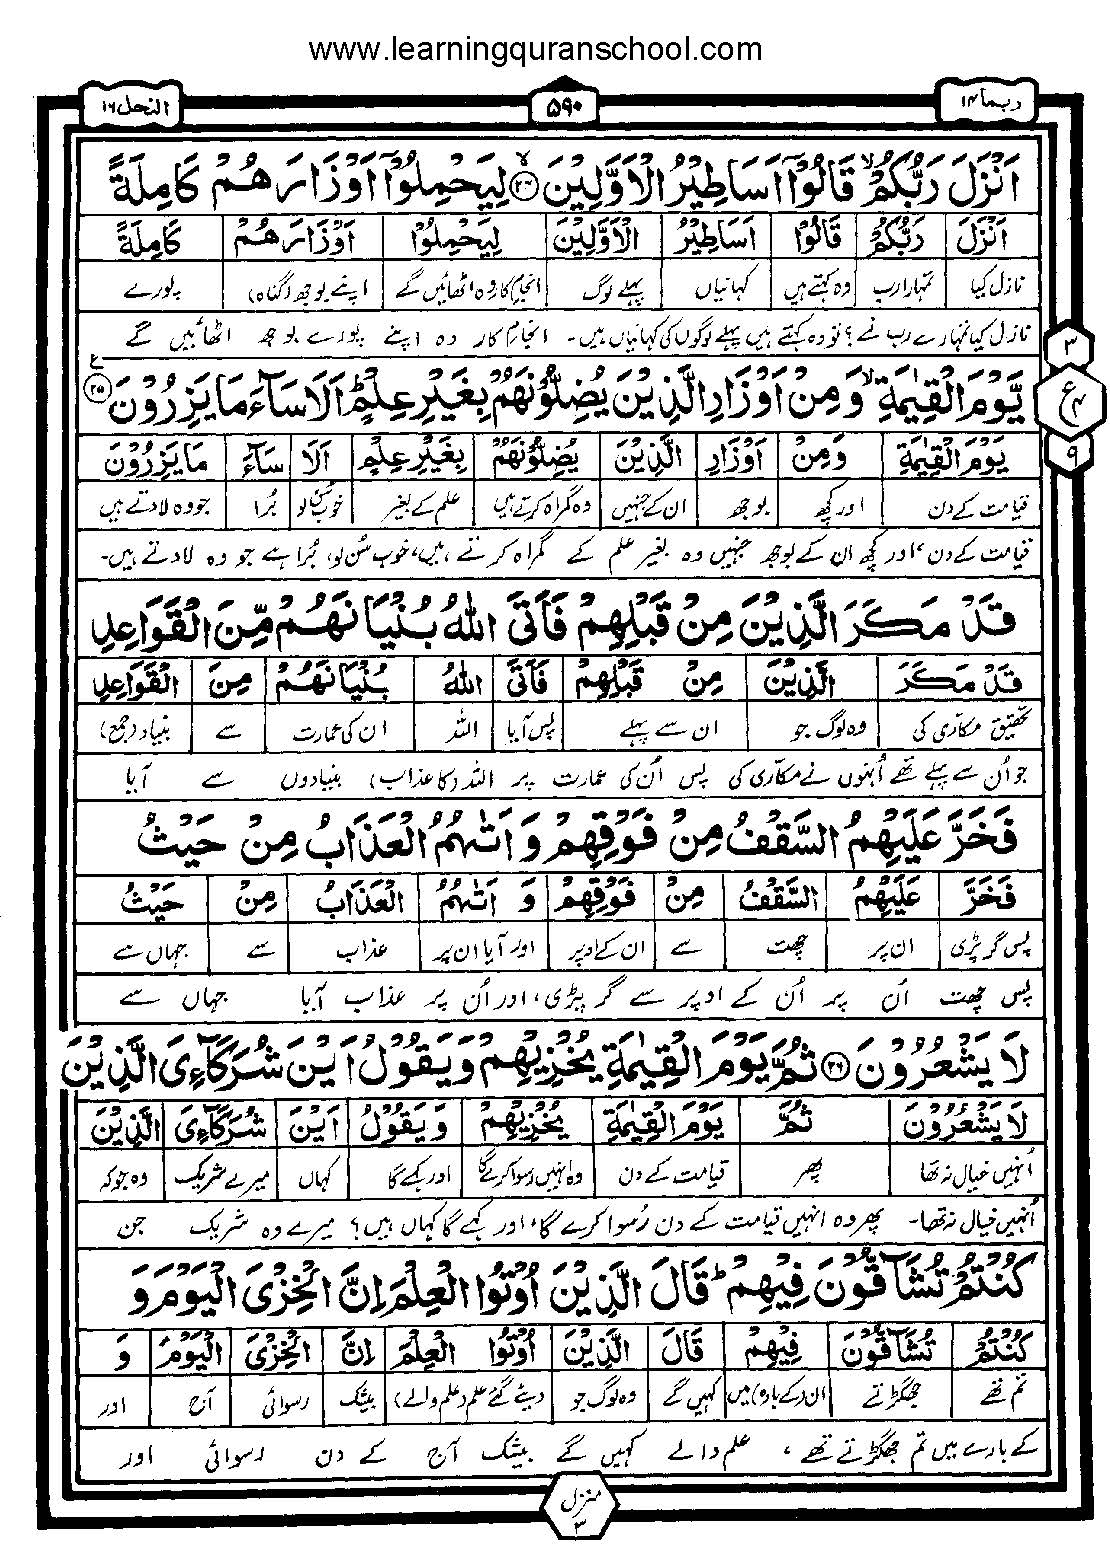 www.learningquranschool.com
النحل ١٦
۵۹۰
ربما ١٤
اَنْزَلَ رَبُّكُمْ ۙ قَالُوْۤا اَسَاطِيْرُ الْاَوَّلِيْنَ ۙ۲۴ لِيَحْمِلُوْۤا اَوْزَارَهُمْ كَامِلَةً
اَنْزَلَ رَبُّكُمْ قَالُوْۤا اَسَاطِيْرُ الْاَوَّلِيْنَ لِيَحْمِلُوْۤا اَوْزَارَهُمْ كَامِلَةً
نازل کیا تمہارا رب وہ کہتے ہیں کہانیاں پہلے لوگ انجام کار وہ اٹھائیں گے اپنے بوجھ (گناہ) پورے
نازل کیا تمہارے رب نے؟ تو وہ کہتے ہیں پہلے لوگوں کی کہانیاں ہیں۔ انجام کار وہ اپنے پورے بوجھ اٹھائیں گے
يَّوْمَ الْقِيٰمَةِ ۙ وَمِنْ اَوْزَارِ الَّذِيْنَ يُضِلُّوْنَهُمْ بِغَيْرِ عِلْمٍ ؕ اَلَا سَآءَ مَا يَزِرُوْنَ ۲۵ ع
۳
ع ۴
۹
يَوْمَ الْقِيٰمَةِ وَمِنْ اَوْزَارِ الَّذِيْنَ يُضِلُّوْنَهُمْ بِغَيْرِ عِلْمٍ اَلَا سَآءَ مَا يَزِرُوْنَ
قیامت کے دن اور کچھ بوجھ ان کے جنہیں وہ گمراہ کرتے ہیں علم کے بغیر خوب سن لو بُرا جو وہ لادتے ہیں
قیامت کے دن، اور کچھ ان کے بوجھ جنہیں وہ بغیر علم کے گمراہ کرتے ہیں، خوب سُن لو، بُرا ہے جو وہ لادتے ہیں۔
قَدْ مَكَرَ الَّذِيْنَ مِنْ قَبْلِهِمْ فَاَتَى اللّٰهُ بُنْيَانَهُمْ مِّنَ الْقَوَاعِدِ
قَدْ مَكَرَ الَّذِيْنَ مِنْ قَبْلِهِمْ فَاَتَى اللّٰهُ بُنْيَانَهُمْ مِنَ الْقَوَاعِدِ
تحقیق مکاری کی وہ لوگ جو ان سے پہلے پس آیا اللہ ان کی عمارت سے بنیاد (جمع)
جو اُن سے پہلے تھے اُنہوں نے مکاری کی پس اُن کی عمارت پر اللہ (کا عذاب) بنیادوں سے آیا
فَخَرَّ عَلَيْهِمُ السَّقْفُ مِنْ فَوْقِهِمْ وَاَتٰىهُمُ الْعَذَابُ مِنْ حَيْثُ
فَخَرَّ عَلَيْهِمُ السَّقْفُ مِنْ فَوْقِهِمْ وَ اَتٰىهُمُ الْعَذَابُ مِنْ حَيْثُ
پس گر پڑی ان پر چھت سے ان کے اوپر اور آیا ان پر عذاب سے جہاں سے
پس چھت اُن پر اُن کے اوپر سے گر پڑی، اور اُن پر عذاب آیا جہاں سے
لَا يَشْعُرُوْنَ ۲۶ ثُمَّ يَوْمَ الْقِيٰمَةِ يُخْزِيْهِمْ وَيَقُوْلُ اَيْنَ شُرَكَآءِىَ الَّذِيْنَ
لَا يَشْعُرُوْنَ ثُمَّ يَوْمَ الْقِيٰمَةِ يُخْزِيْهِمْ وَيَقُوْلُ اَيْنَ شُرَكَآءِىَ الَّذِيْنَ
اُنہیں خیال نہ تھا پھر قیامت کے دن وہ انہیں رسوا کرے گا اور کہے گا کہاں میرے شریک وہ جو کہ
اُنہیں خیال نہ تھا۔ پھر وہ انہیں قیامت کے دن رُسوا کرے گا، اور کہے گا کہاں ہیں؟ میرے وہ شریک جن
كُنْتُمْ تُشَآقُّوْنَ فِيْهِمْ ؕ قَالَ الَّذِيْنَ اُوْتُوا الْعِلْمَ اِنَّ الْخِزْىَ الْيَوْمَ وَ
كُنْتُمْ تُشَآقُّوْنَ فِيْهِمْ قَالَ الَّذِيْنَ اُوْتُوا الْعِلْمَ اِنَّ الْخِزْىَ الْيَوْمَ وَ
تم تھے جھگڑتے (ان کے بارہ) میں کہیں گے وہ لوگ جو دیئے گئے علم (علم والے) بیشک رسوائی آج اور
کے بارے میں تم جھگڑتے تھے، علم والے کہیں گے بیشک آج کے دن رسوائی اور
منزل
۳